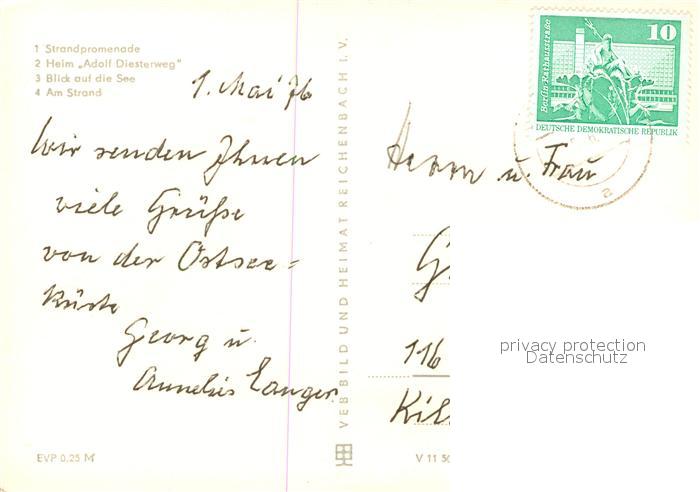 1 Strandpromenade
2 Heim „Adolf Diesterweg"
3 Blick auf die See
4 Am Strand
1. Mai 76
Wir senden Ihnen
viele Grüße
von der Ostsee=
Küste
Georg u.
Annelies Langer
EVP 0,25 M
VEB BILD UND HEIMAT REICHENBACH I. V.
V 11 50
10
Berlin-Rathausstraße
DEUTSCHE DEMOKRATISCHE REPUBLIK
Herrn u. Frau
G
116
privacy protection
Datenschutz